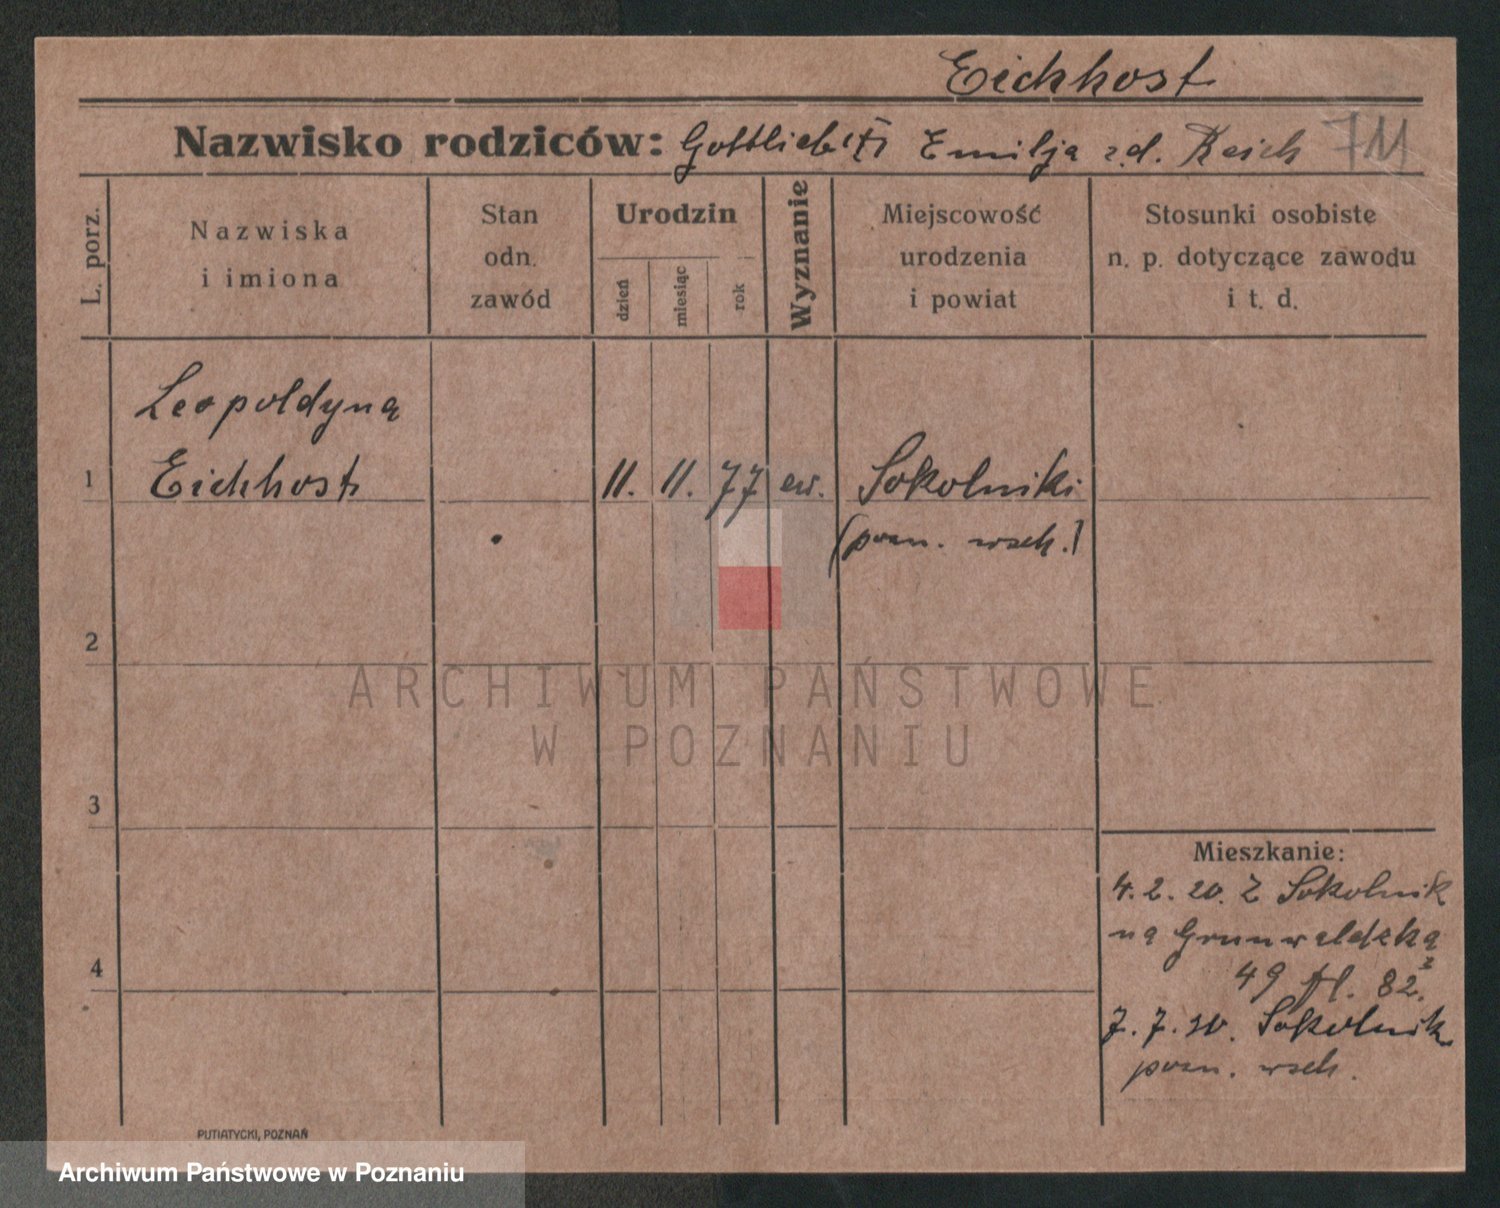 Eichhost
Nazwisko rodziców: Gottlieb i Emilja z.d. Reich 711
L. porz.
Nazwiska
i imiona
Stan
odn.
zawód
Urodzin
dzień
miesiąc
rok
Wyznanie
Miejscowość
urodzenia
i powiat
Stosunki osobiste
n. p. dotyczące zawodu
i t. d.
Leopoldyna
1 Eichhost 11. 11. 77 ew. Sokolniki
(pozn. wsch.)
2
ARCHIWUM PAŃSTWOWE
W POZNANIU
3
Mieszkanie:
4. 2. 20. Z Sokolnik
na Grunwaldzką
4 49 fl. 82.
7. 7. 20. Sokolnik
pozn. wsch.
PUTIATYCKI, POZNAŃ
Archiwum Państwowe w Poznaniu